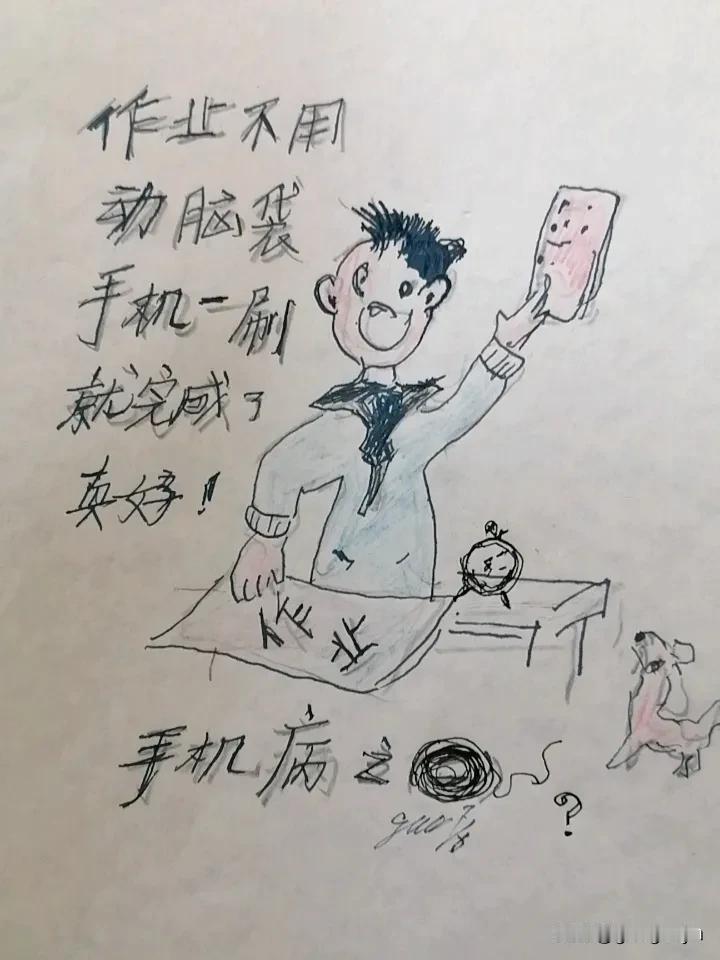 作业不用
动脑袋
手机一刷
就完成了
真好！
作业
手机病之
?
gao 7/8